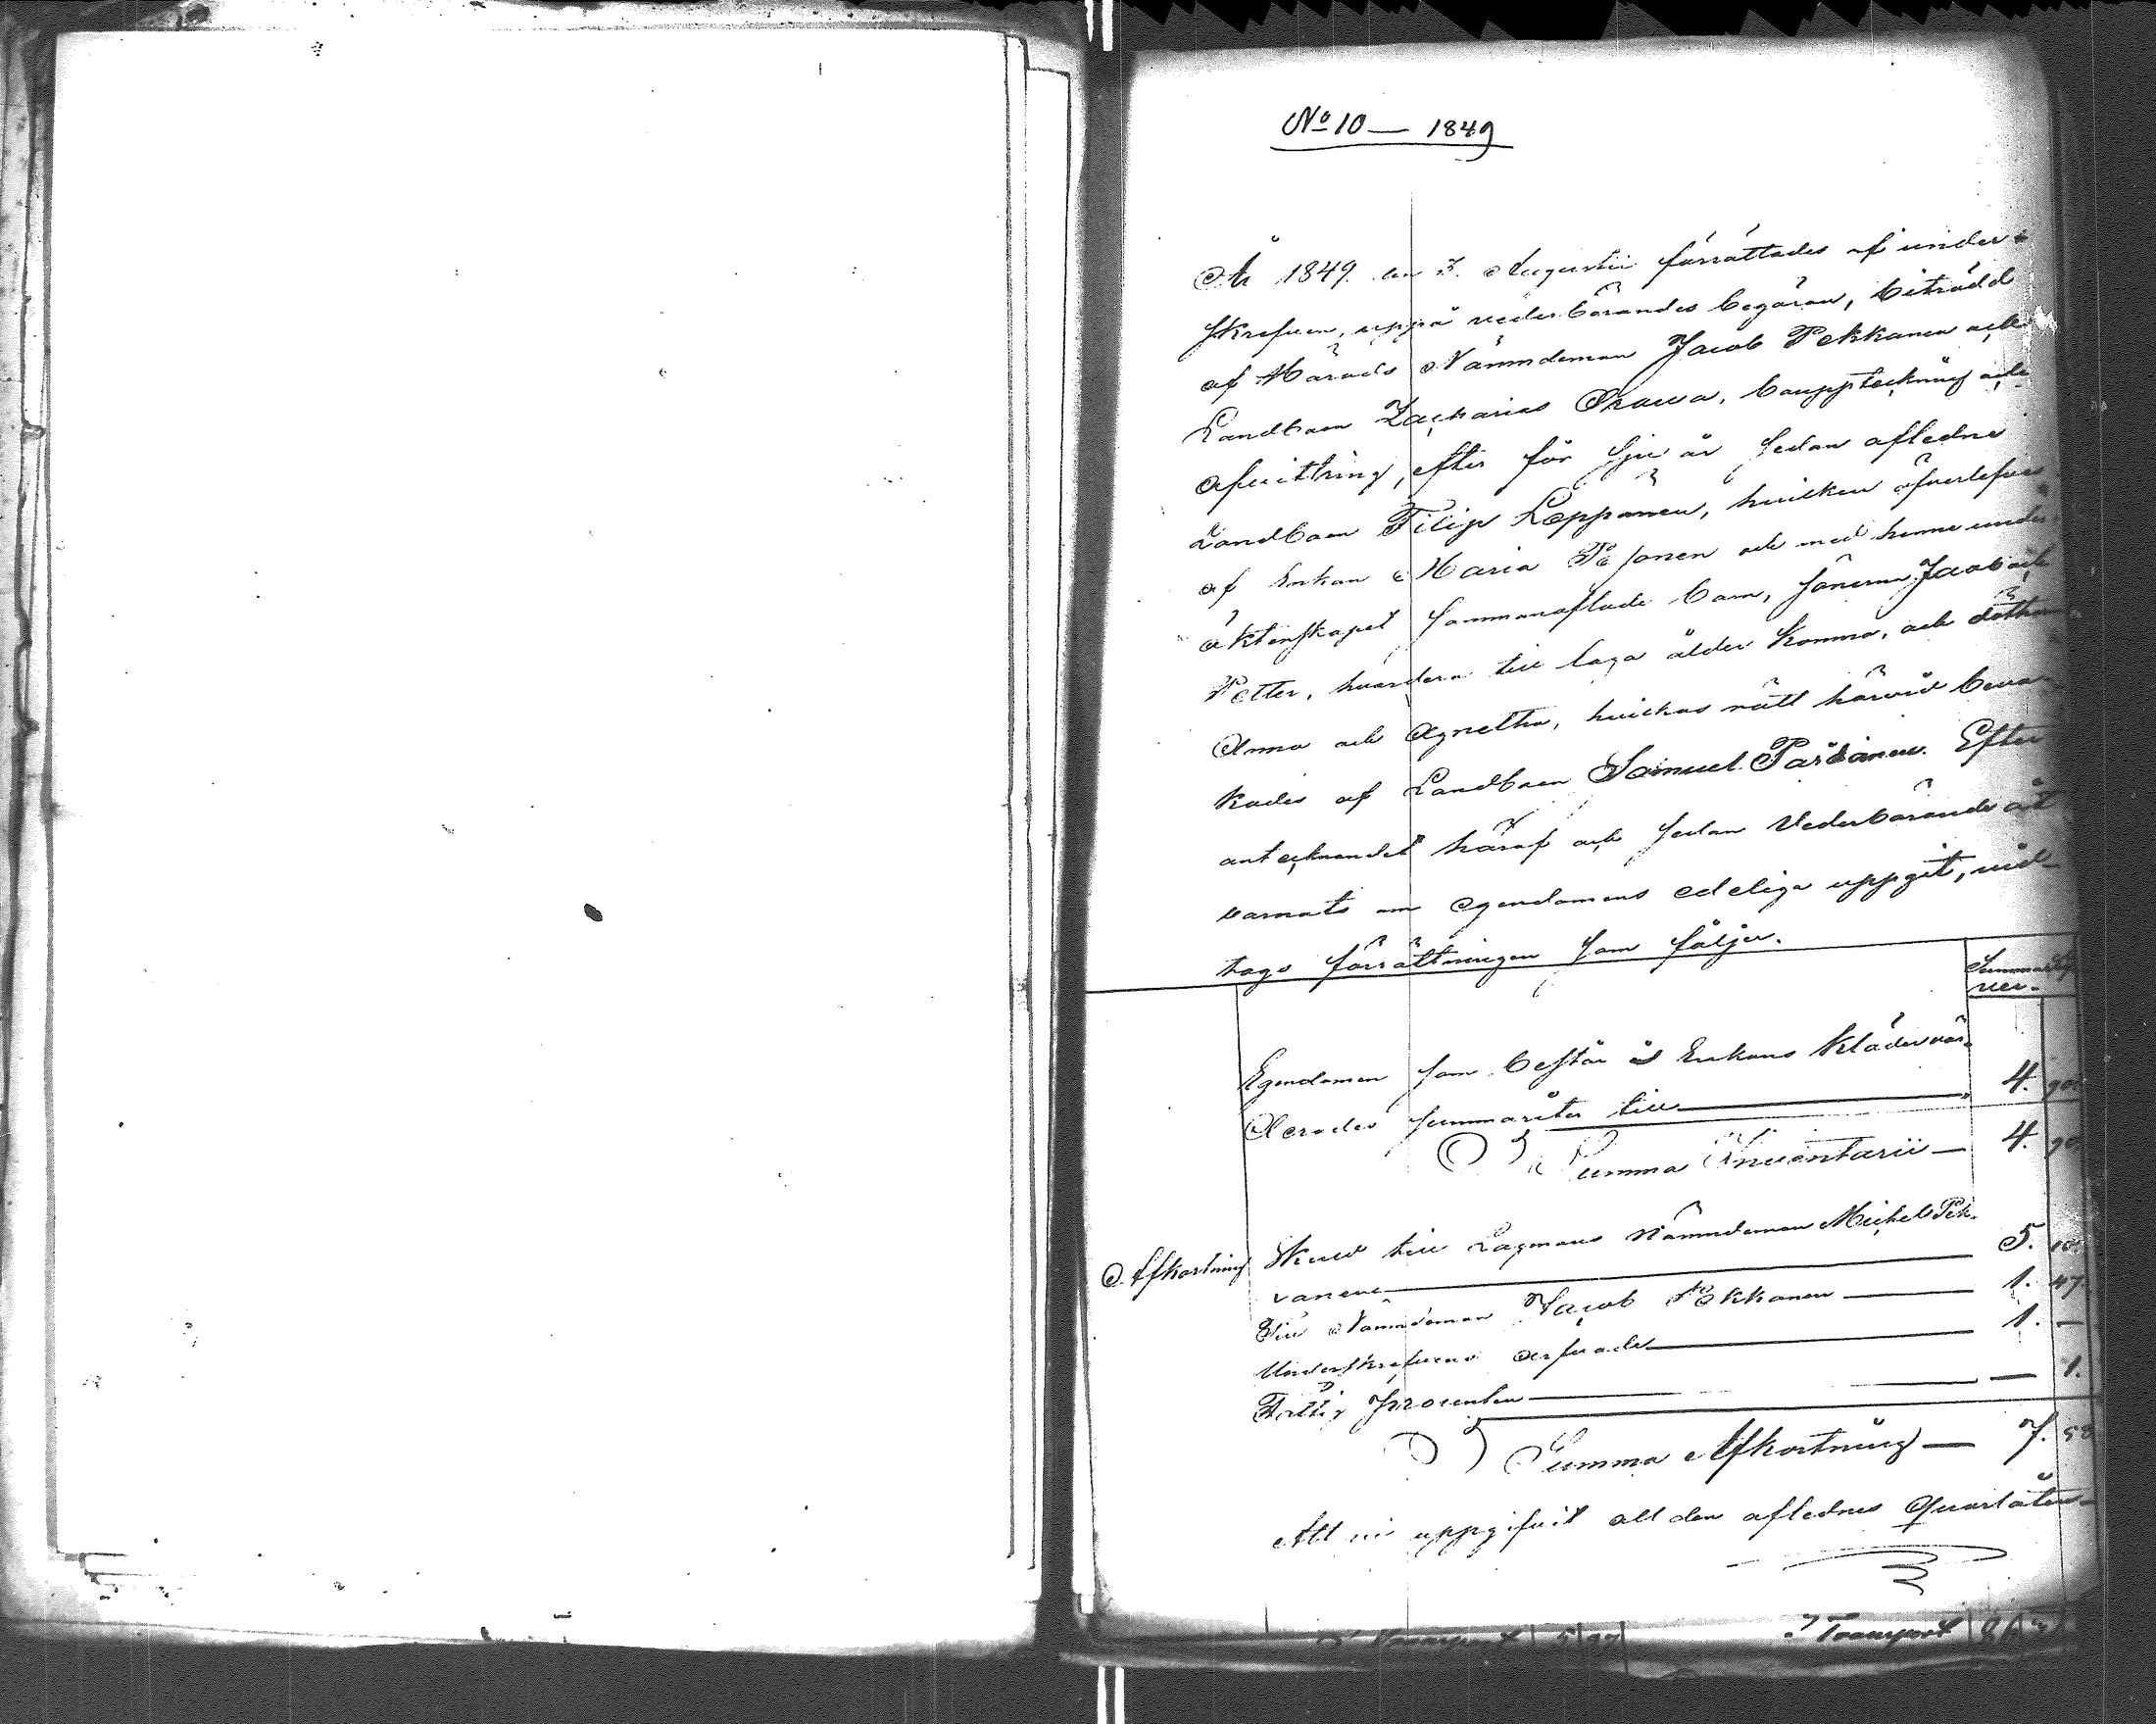 No 10 — 1849
År 1849 den 3. Augustii förrättades af under-
skrefven, uppå vederbörandes begäran, biträdd
af Härads Nämndeman Jacob Pekkanen och
Landboen Zacharias Orawa, bouppteckning och
afvittring, efter för sju år sedan afledne
Landboen Filip Leppänen, hvilken öfverlefves
af Enkan Maria and med henne under
äktenskapet sammanaflade barn, sönerna Jacob och
Petter, hvardera till laga ålder komma, och döttrarne
Anna och Agnetha, hvilkas rätt härvid beva-
kades af Landboen Samuel Parviainen. Efter
antecknandet häraf och sedan Vederbörande åt-
varnats om egendomens edeliga uppgift, vid-
togs förrättningen som följer.
Summa
Egendomen som består af Enkans Kläder vär-
derades summariter till — 4. 90.
Summa Inventarii — 4. 90.
Afkortning
Skuld till Lagmans Nämndeman Michel Pek-
kanen — 5. 10.
Till Nämndeman Jacob Pekkanen — 1. 47.
Underskrefvens arfvode — 1. —
Fattig procenten — — 1.
Summa Afkortning — 7. 58
Att vi uppgifvit all den aflednes qvarlåten-
Transport